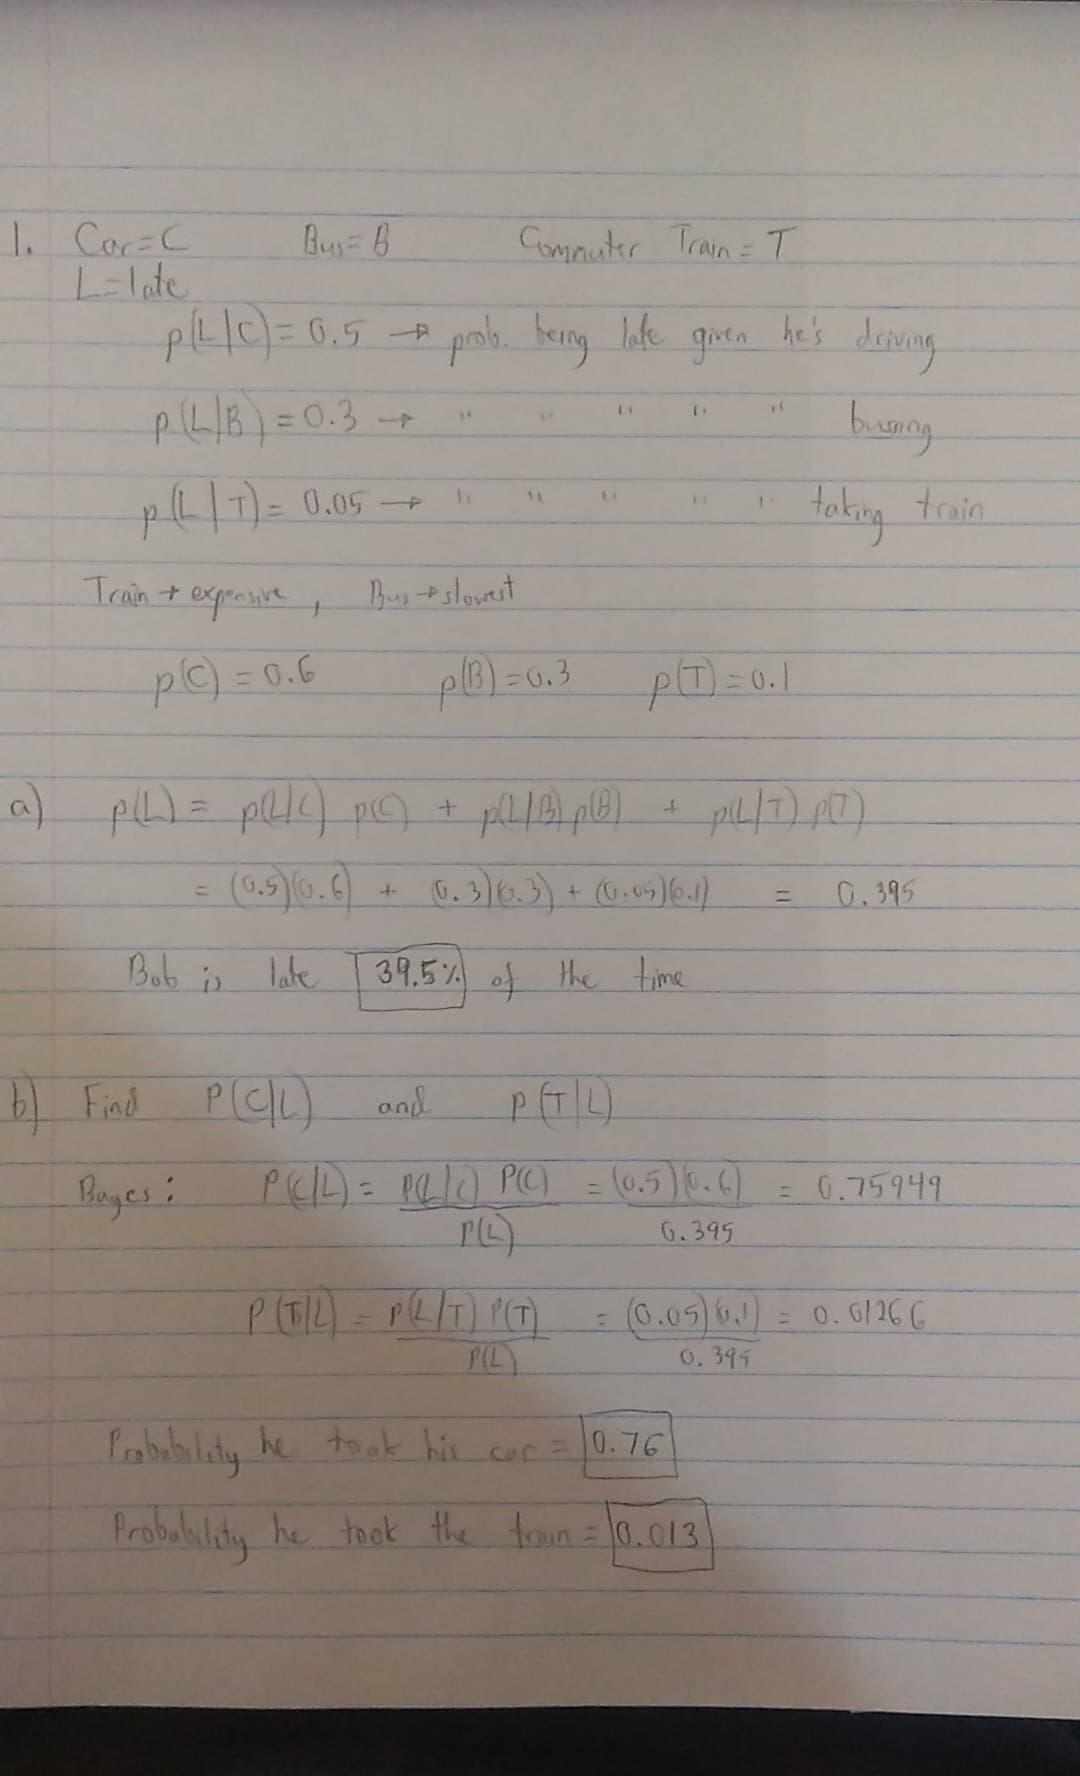 1. Car = C Bus = B Commuter Train = T
L = late
p(L|C) = 0.5 → prob. being late given he's driving
p(L|B) = 0.3 → " " " " " bussing
p(L|T) = 0.05 → " " " " " taking train
Train → expensive, Bus → slowest
p(C) = 0.6 p(B) = 0.3 p(T) = 0.1
a) p(L) = p(L|C) p(C) + p(L|B) p(B) + p(L|T) p(T)
= (0.5)(0.6) + (0.3)(0.3) + (0.05)(0.1) = 0.395
Bob is late 39.5% of the time
b) Find P(C|L) and P(T|L)
Bayes: P(C|L) = P(L|C) P(C) / P(L) = (0.5)(0.6) / 0.395 = 0.75949
P(T|L) = P(L|T) P(T) / P(L) = (0.05)(0.1) / 0.395 = 0.01266
Probability he took his car = 0.76
Probability he took the train = 0.013